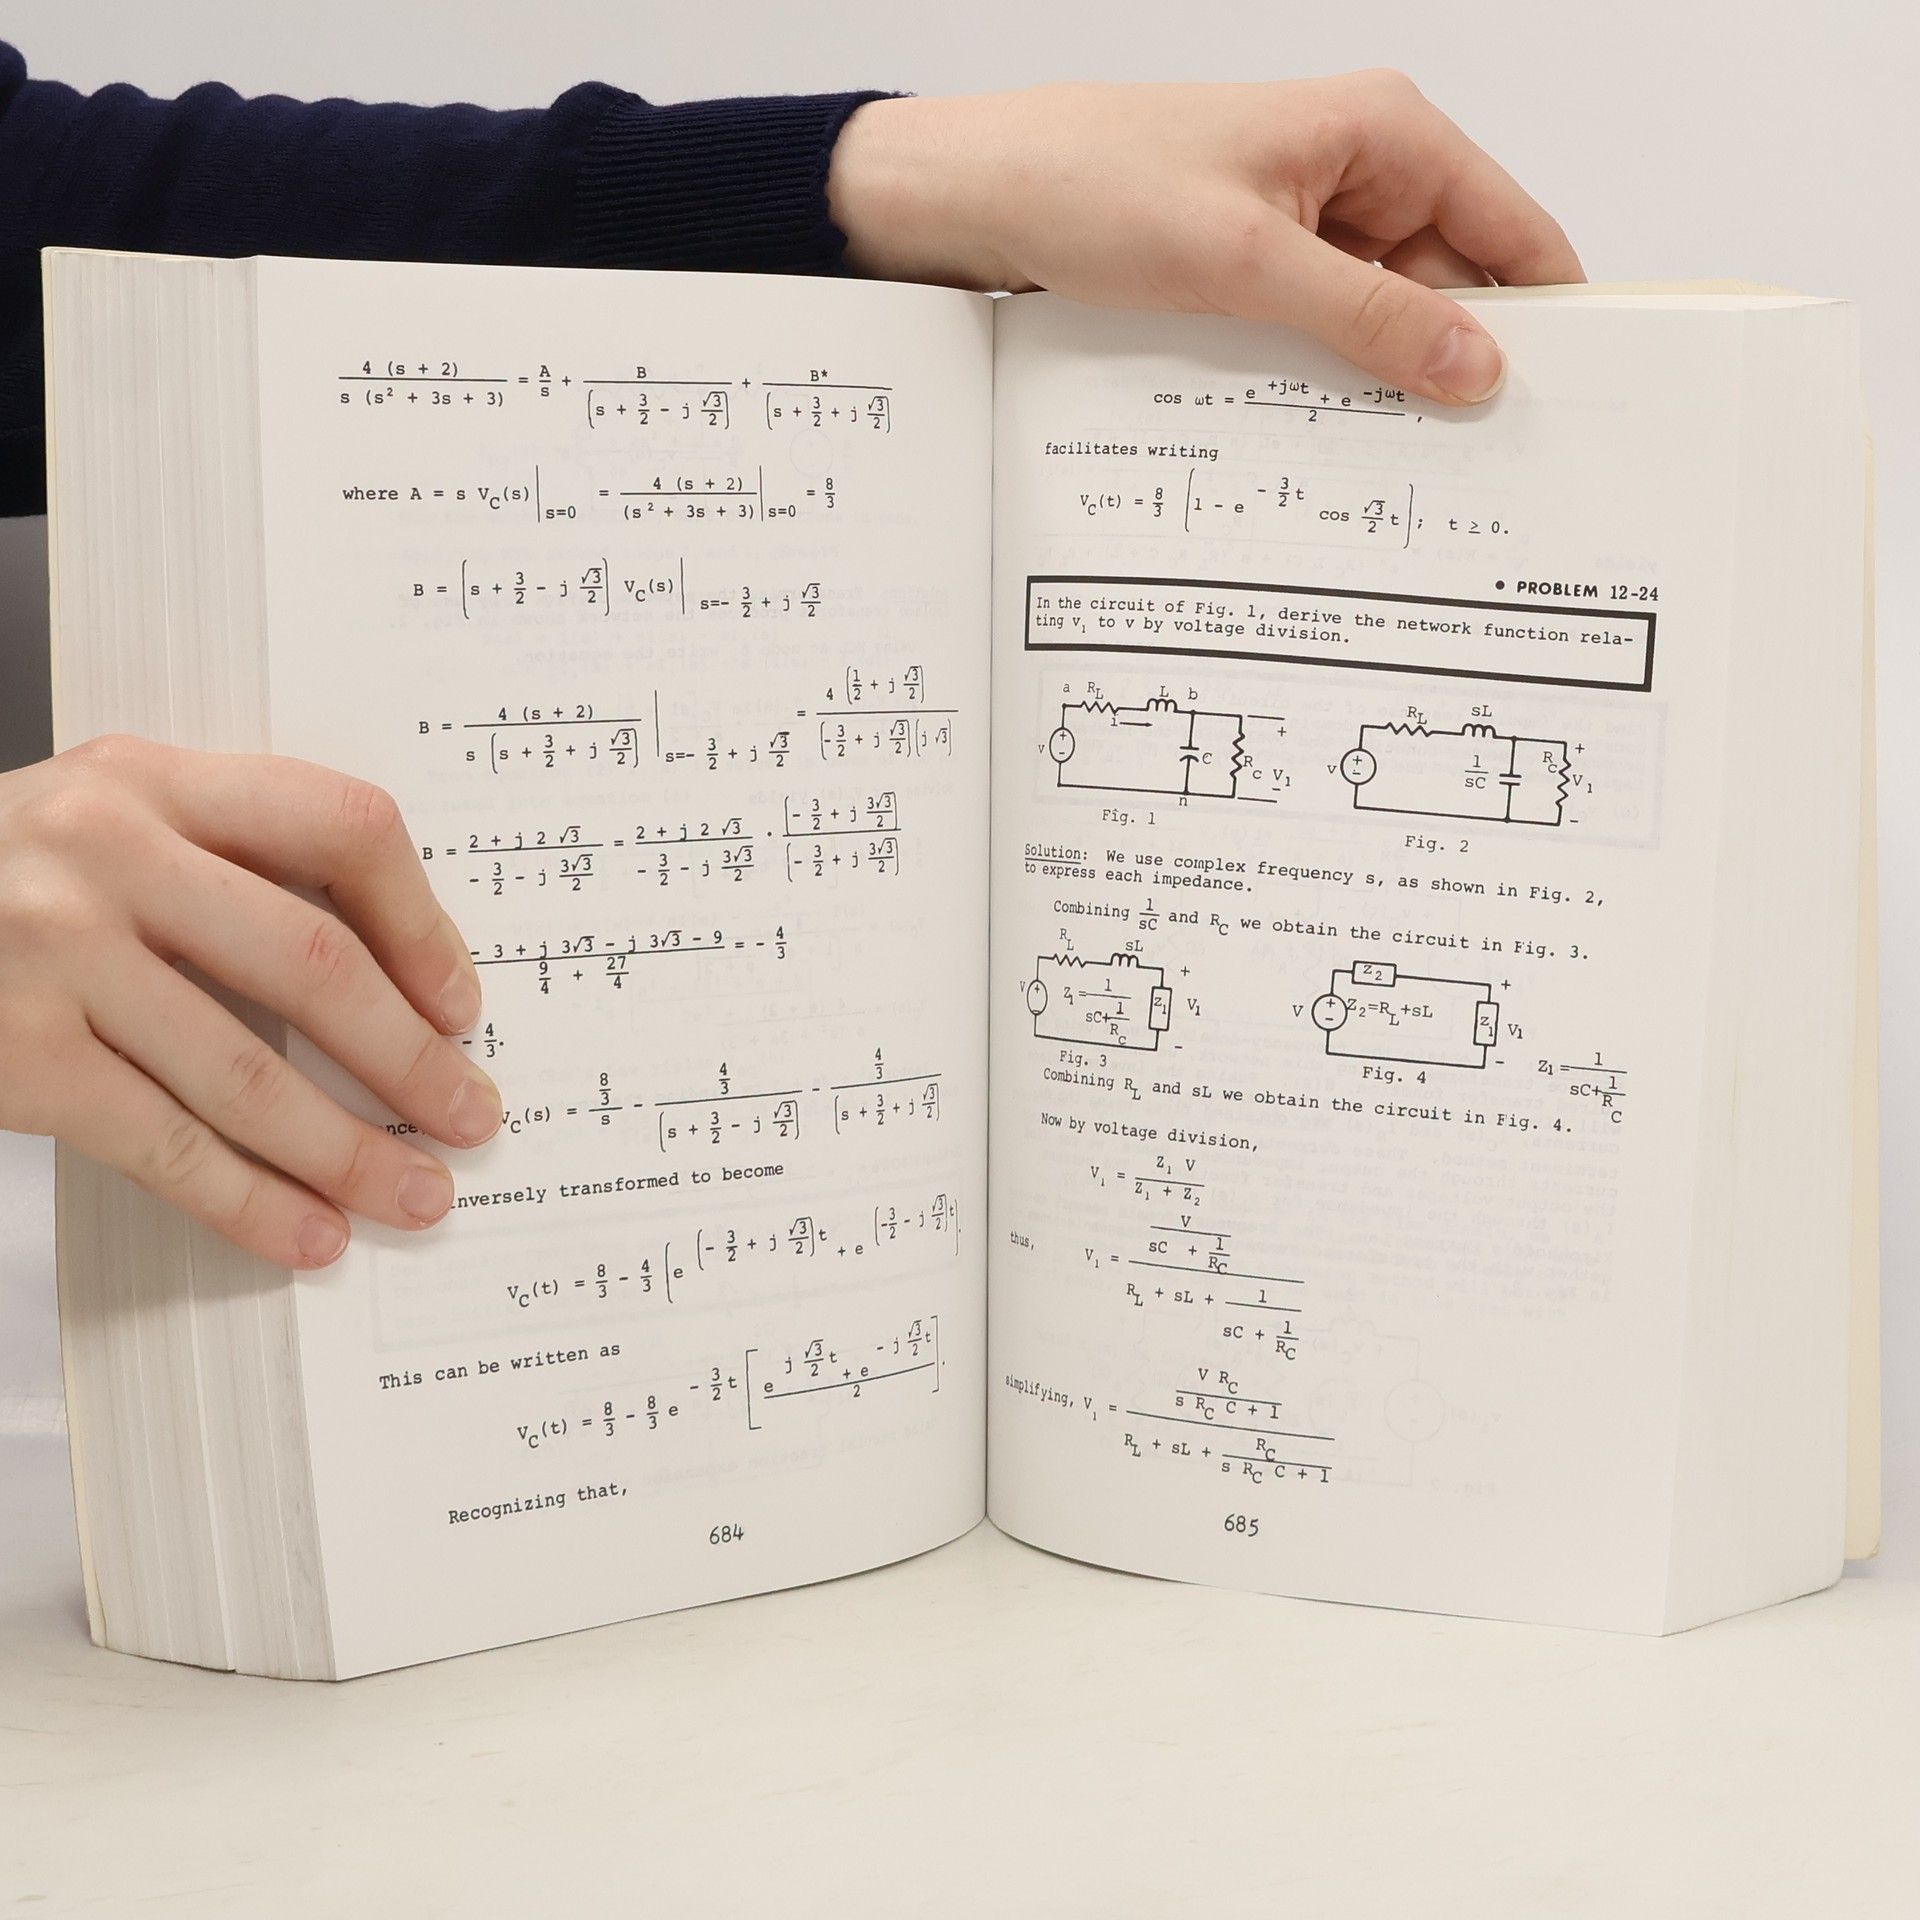 4 (s + 2) / s (s² + 3s + 3) = A/s + B / (s + 3/2 - j √3/2) + B* / (s + 3/2 + j √3/2)
where A = s V_C(s) |s=0 = 4 (s + 2) / (s² + 3s + 3) |s=0 = 8/3
B = (s + 3/2 - j √3/2) V_C(s) | s=- 3/2 + j √3/2
B = 4 (s + 2) / s (s + 3/2 + j √3/2) | s=- 3/2 + j √3/2 = 4 (1/2 + j √3/2) / (-3/2 + j √3/2)(j √3)
B = 2 + j 2 √3 / - 3/2 - j 3√3/2 = 2 + j 2 √3 / - 3/2 - j 3√3/2 · (- 3/2 + j 3√3/2) / (- 3/2 + j 3√3/2)
- 3 + j 3√3 - j 3√3 - 9 / 9/4 + 27/4 = - 4/3
- 4/3.
V_C(s) = 8/3 / s - 4/3 / (s + 3/2 - j √3/2) - 4/3 / (s + 3/2 + j √3/2)
transformed to become
V_C(t) = 8/3 - 4/3 [e^(- 3/2 + j √3/2)t + e^(-3/2 - j √3/2)t].
This can be written as
V_C(t) = 8/3 - 8/3 e^- 3/2 t [e^j √3/2 t + e^- j √3/2 t / 2].
Recognizing that,
684
cos ωt = e^+jωt + e^-jωt / 2 ,
facilitates writing
V_C(t) = 8/3 [1 - e^- 3/2 t cos √3/2 t]; t ≥ 0.
• PROBLEM 12-24
In the circuit of Fig. 1, derive the network function rela-
ting v₁ to v by voltage division.
a R_L L b
i
v + - C R_C V₁ + -
n
Fig. 1
R_L sL
v + - 1/sC R_C V₁ + -
Fig. 2
Solution: We use complex frequency s, as shown in Fig. 2,
to express each impedance.
Combining 1/sC and R_C we obtain the circuit in Fig. 3.
R_L sL
V + Z₁ = 1 / sC+1/R_C Z₁ V₁ + -
Fig. 3
Z₂
V + - Z₂=R_L+sL Z₁ V₁ + -
Z₁ = 1 / sC+1/R_C
Fig. 4
Combining R_L and sL we obtain the circuit in Fig. 4.
Now by voltage division,
V₁ = Z₁ V / Z₁ + Z₂
thus, V₁ = V / sC + 1/R_C / R_L + sL + 1 / sC + 1/R_C
simplifying, V₁ = V R_C / s R_C C + 1 / R_L + sL + R_C / s R_C C + 1
685